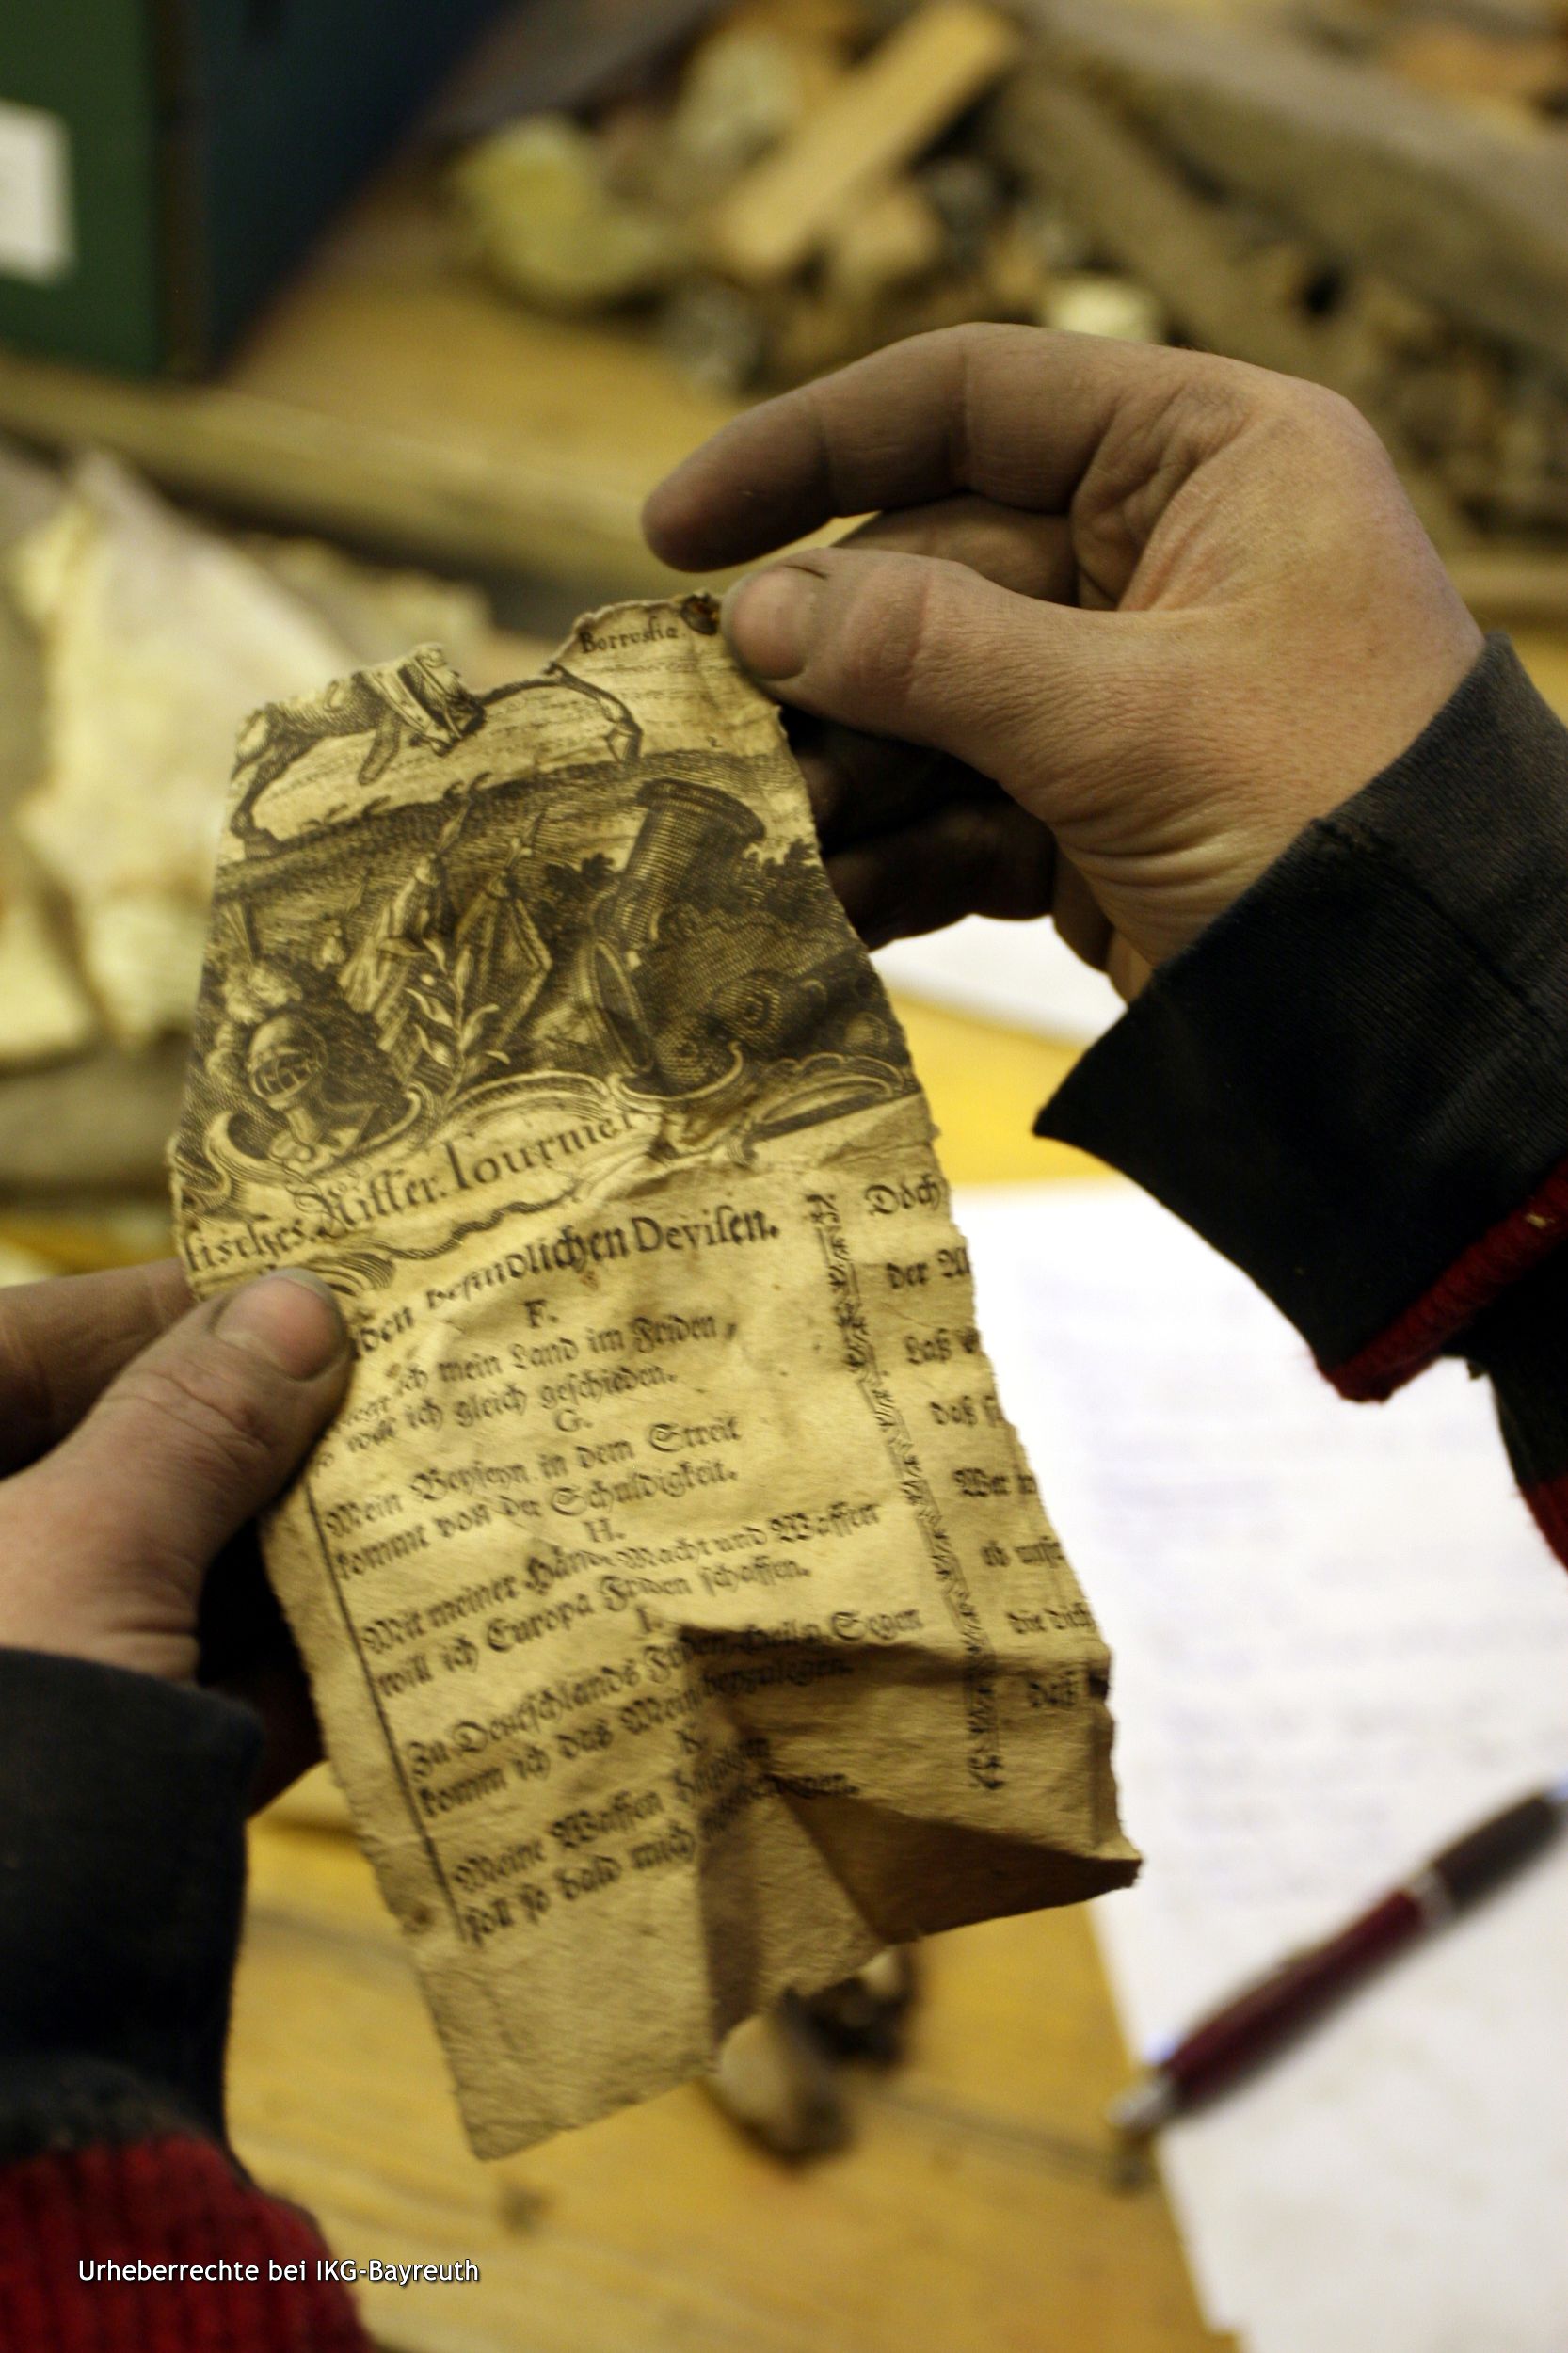 Borrussia.
tisches Ritter. Tournier
den befindlichen Devisen.
F.
ich mein Land im Friden,
so will ich gleich geschieden.
G.
Mein Beyseyn in dem Streit
kommt von der Schuldigkeit.
H.
Mit meiner Hände Macht und Waffen
will ich Europa Friden schaffen.
I.
Zu Deutschlands Friden, Heil, Segen
komm ich das Mein beyzulegen.
K.
Meine Waffen
soll so bald mich
Doch
der
Laß
daß
Wer
ob
die dich
Daß
Urheberrechte bei IKG-Bayreuth